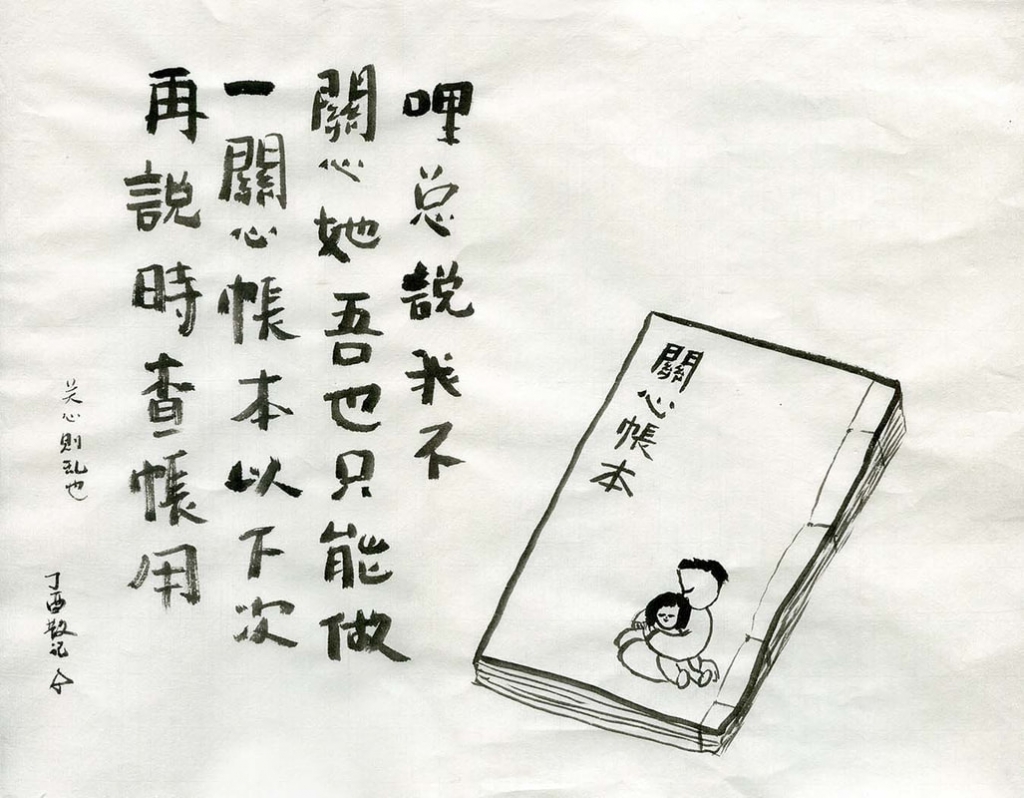 哩总說我不
關心她吾也只能做
一關心帳本以下次
再說時查帳用
关心則乱也
丁酉散记
關心帳本